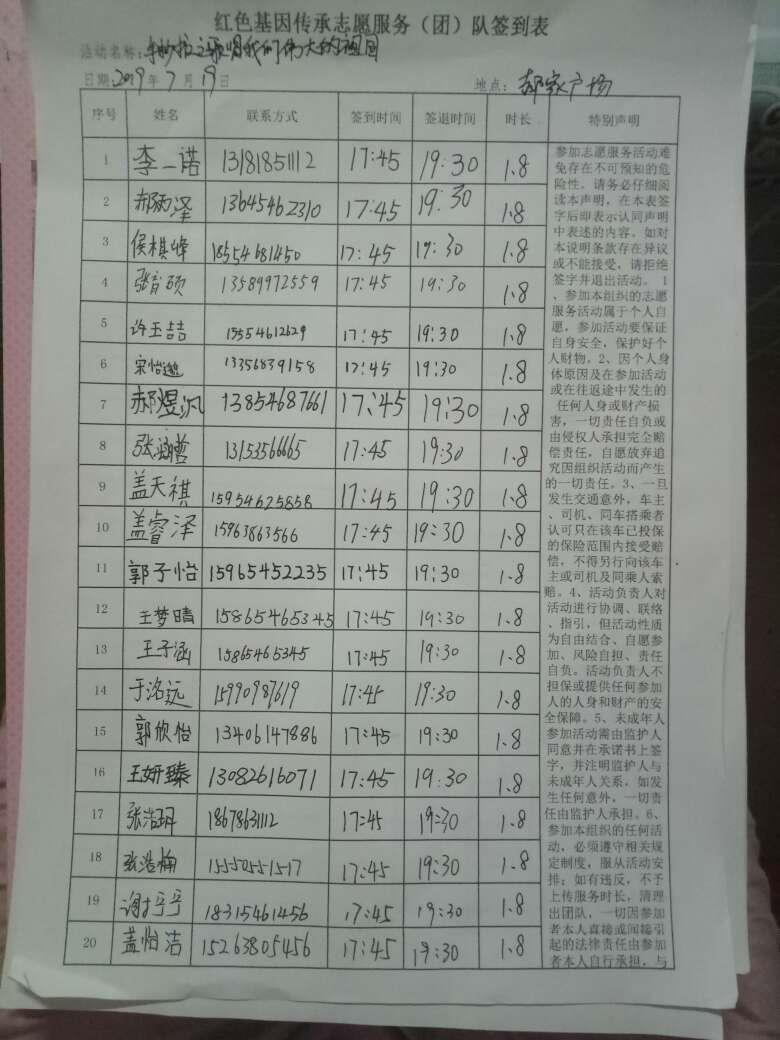 红色基因传承志愿服务（团）队签到表
活动名称：手抄报之歌唱我们伟大的祖国
日期2019年7月19日 地点：郝家广场
序号 姓名 联系方式 签到时间 签退时间 时长 特别声明
1 李一诺 13181851112 17:45 19:30 1.8
2 郝雨泽 13645462310 17:45 19:30 1.8
3 侯棋峰 18554681450 17:45 19:30 1.8
4 张音硕 13589972559 17:45 19:30 1.8
5 许玉喆 15554612629 17:45 19:30 1.8
6 宋怡逸 13356839158 17:45 19:30 1.8
7 郝煜沨 13854687661 17:45 19:30 1.8
8 张涵哲 13153566665 17:45 19:30 1.8
9 盖天祺 15954625858 17:45 19:30 1.8
10 盖睿泽 15963863566 17:45 19:30 1.8
11 郭子怡 15965452235 17:45 19:30 1.8
12 王梦晴 15865465345 17:45 19:30 1.8
13 王子涵 15865465345 17:45 19:30 1.8
14 于洺远 15990987619 17:45 19:30 1.8
15 郭欣怡 13406147886 17:45 19:30 1.8
16 王妍臻 13082616071 17:45 19:30 1.8
17 张浩玥 18678631112 17:45 19:30 1.8
18 张浩楠 15550551517 17:45 19:30 1.8
19 18315461456 17:45 19:30 1.8
20 盖怡洁 15263805456 17:45 19:30 1.8
参加志愿服务活动难
免存在不可预知的危
险性。请务必仔细阅
读本声明，在本表签
字后即表示认同声明
中表述的内容。如对
本说明条款存在异议
或不能接受，请拒绝
签字并退出活动。 1
、参加本组织的志愿
服务活动属于个人自
愿，参加活动要保证
自身安全，保护好个
人财物。2、因个人身
体原因及在参加活动
或在往返途中发生的
任何人身或财产损
害，一切责任自负或
由侵权人承担完全赔
偿责任，自愿放弃追
究因组织活动而产生
的一切责任。3、一旦
发生交通意外，车主
、司机、同车搭乘者
认可只在该车已投保
的保险范围内接受赔
偿，不得另行向该车
主或司机及同乘人索
赔。4、活动负责人对
活动进行协调、联络
、指引，但活动性质
为自由结合、自愿参
加、风险自担、责任
自负。活动负责人不
担保或提供任何参加
人的人身和财产的安
全保障。5、未成年人
参加活动需由监护人
同意并在承诺书上签
字，并注明监护人与
未成年人关系，如发
生任何意外，一切责
任由监护人承担。6、
参加本组织的任何活
动，必须遵守相关规
定制度，服从活动安
排；如有违反，不予
上传服务时长，清理
出团队，一切因参加
者本人直接或间接引
起的法律责任由参加
者本人自行承担，与